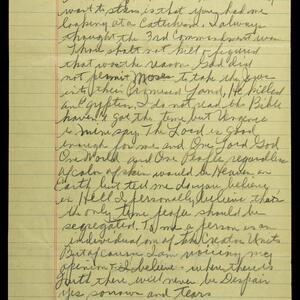 want to stem is that you had me
looking at a Catechism. I always
thought the 3rd Commandment was
Thou shalt not kill & figured
that was the reason God did
not permit Moses to take the Jews
into their Promised Land, He killed
an Egyptian. I do not read the Bible
haven't got the time but Vengence
is mine say The Lord is Good
enough for me and One Lord God
One World and One People regardless
of color of skin would be Heaven on
Earth but tell me do you believe
in Hell I personally believe that's
the only time people should be
segregated. To me a person is an
individual one of the Creator Units
But of course I am voicing my
opinion & I believe where there is
Faith there will never be Despair
yes sorrow and tears